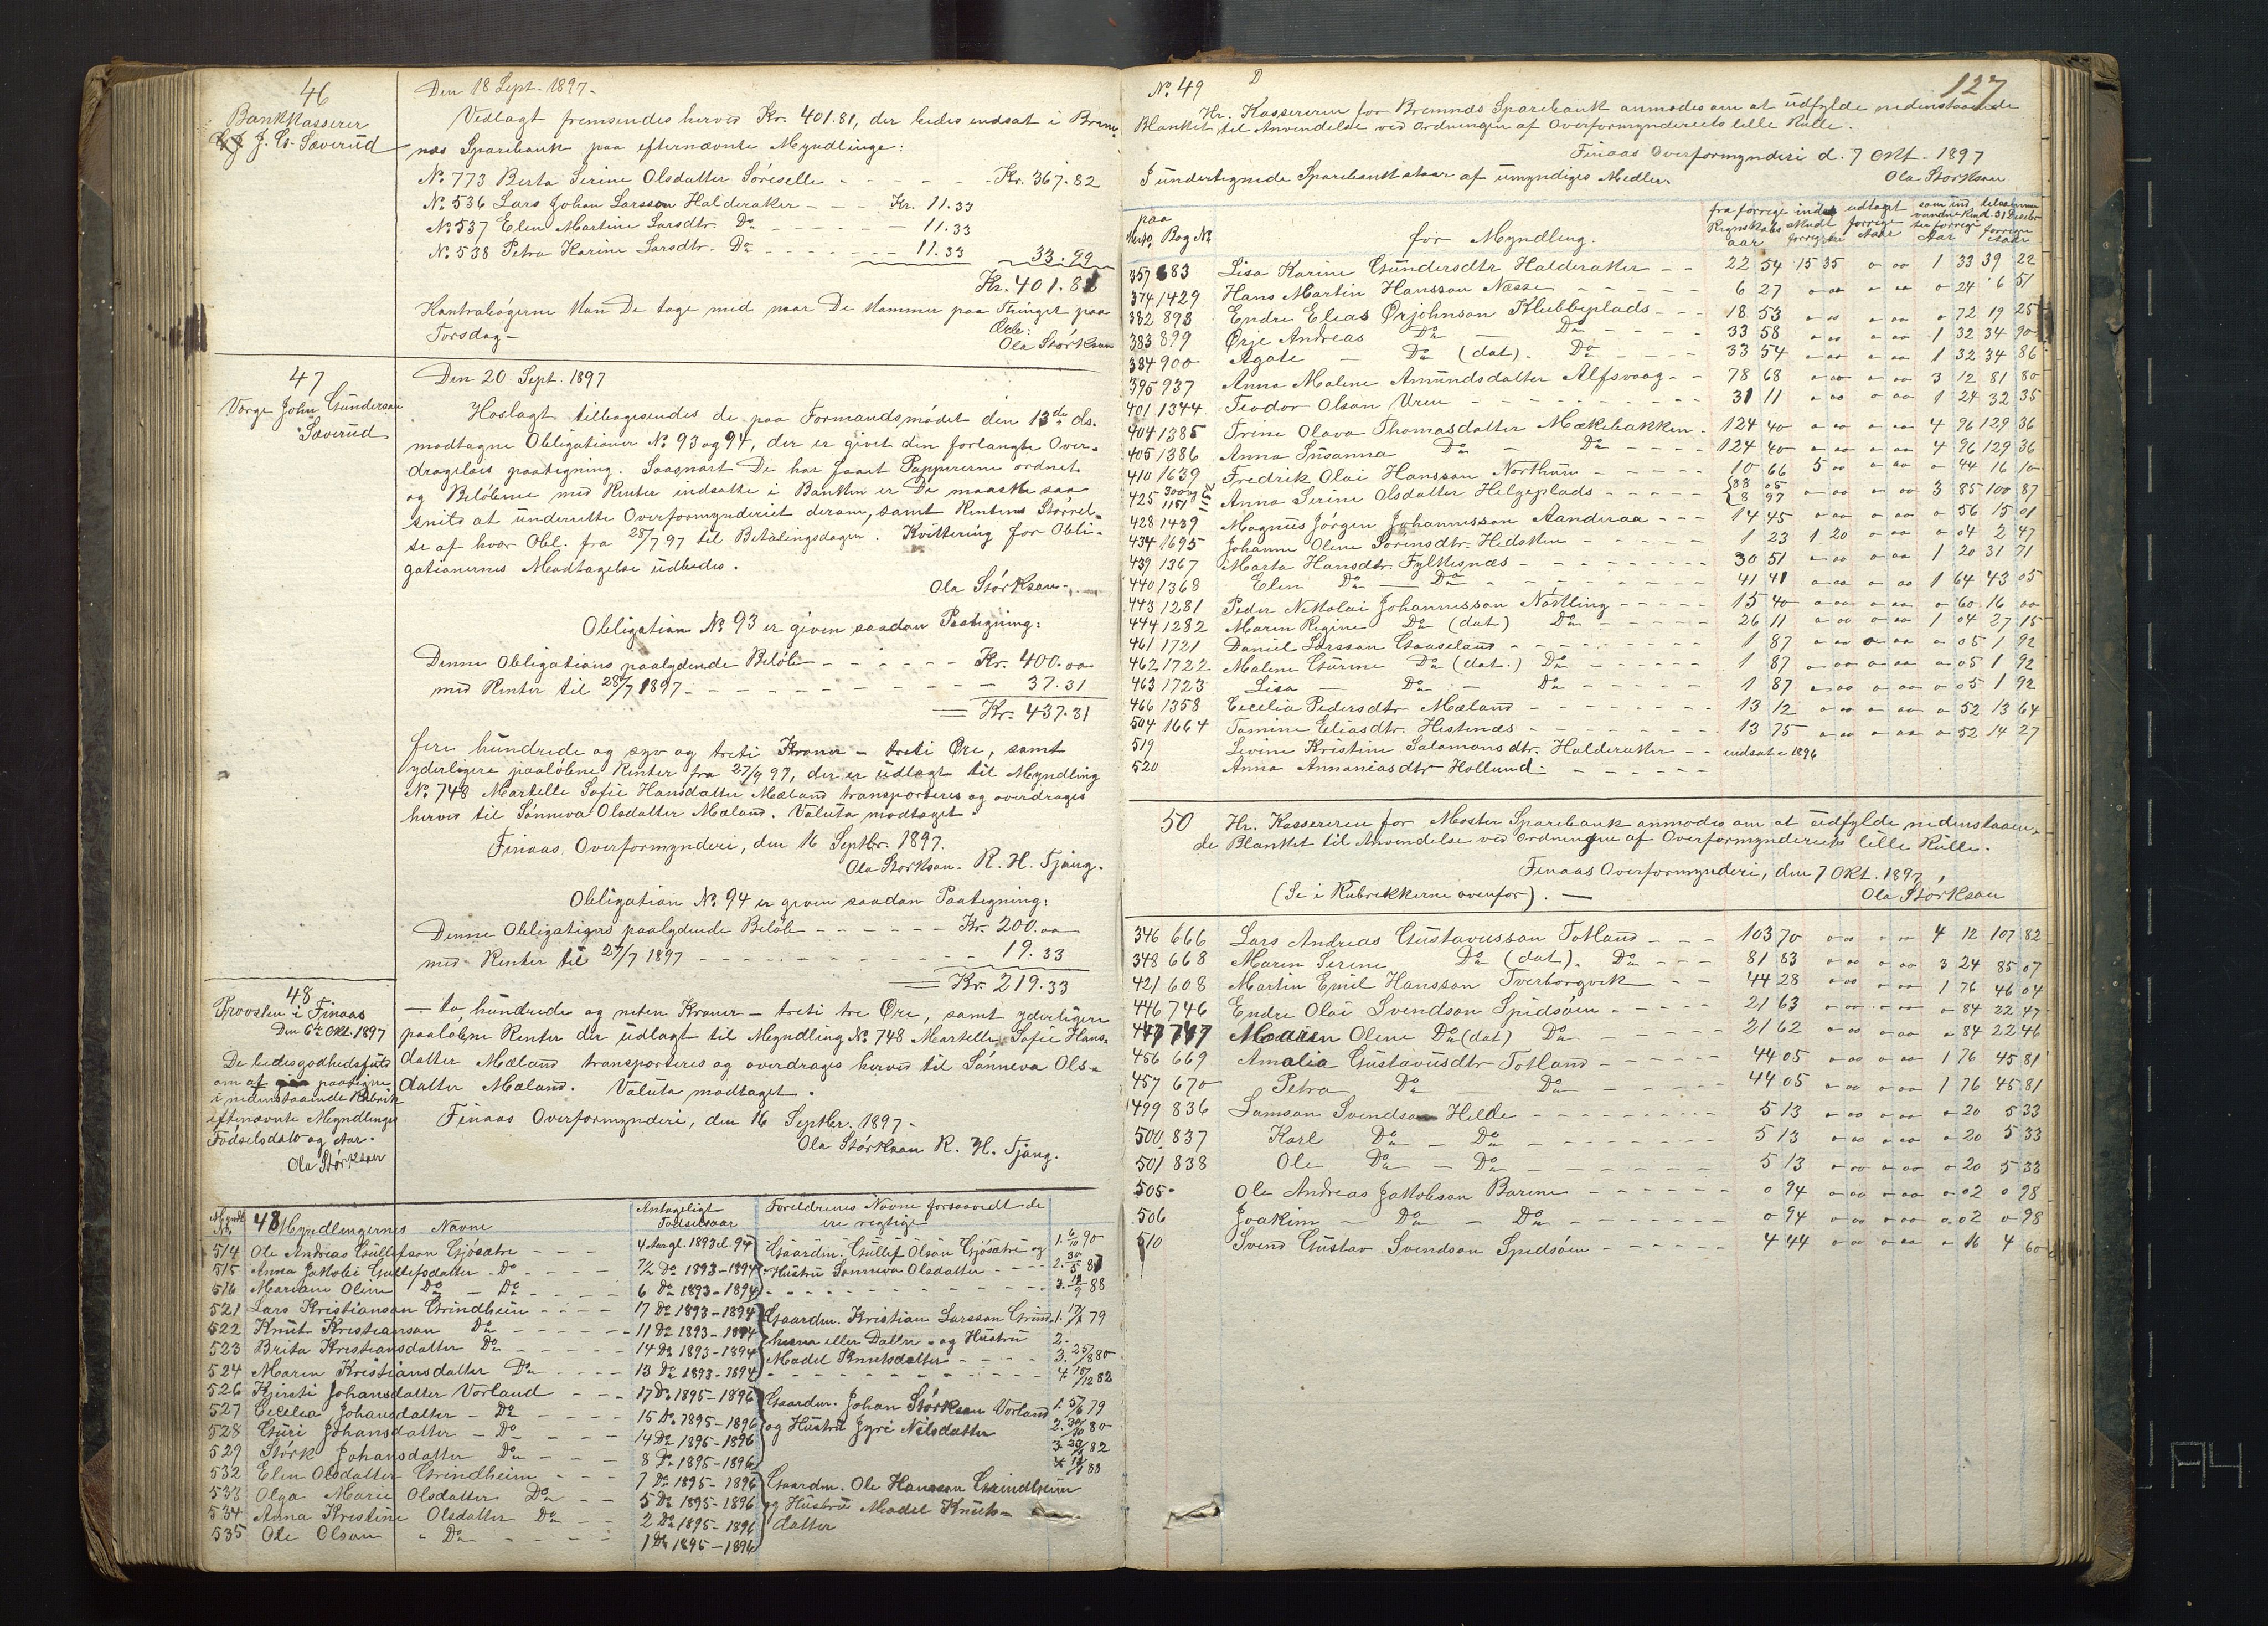 46
Bankkasserer
J. G. Sæverud
Den 18 Sept. 1897.
Vedlagt fremsendes herved Kr. 401.81, der bedes indsat i Brem-
næs Sparebank paa efternævnte Myndlinge:
No 773 Berta Serine Olsdatter Søreselle - - - - - Kr. 367.82
No 536 Lars Johan Larsson Halderaker - - - Kr. 11.33
No 537 Elen Martine Larsdtr. Do - - - - - 11.33
No 538 Petra Karine Larsdtr. Do - - - - - 11.33 33.99
Kr. 401.81
Kontrabøgerne kan De tage med naar De kommer paa Thinget paa
Torsdag -
Ærb:
Ola Størkson
47
Værge John Gunderson
Sæverud
Den 20 Sept. 1897
Hoslagt tilbagesendes de paa Formandsmødet den 13de ds.
modtagne Obligationer No 93 og 94, der er givet den forlangte Over-
dragelses paategning. Saasnart De har faaet Papirerne ordnet
og Beløbene med Renter indsatte i Banken er De maaske saa
snild at underrette Overformynderiet derom, samt Rentens Størrel-
se af hver Obl. fra 28/7 97 til Betalingsdagen. Kvittering for Obli-
gationernes Modtagelse udbedes.
Ola Størkson.
Obligation No 93 er given saadan Paategning:
Denne Obligations paalydende Beløb - - - - - - Kr. 400.00
med Renter til 28/7 1897 - - - - - - - - - 37.31
= Kr. 437.31
fire hundrede og syv og treti Kroner - treti Øre, samt
yderligere paaløbne Renter fra 27/7 97, der er udlagt til Myndling
No 748 Martelle Sofie Hansdatter Mæland transporteres og overdrages
herved til Sønneva Olsdatter Mæland. Valuta modtaget.
Finaas Overformynderi, den 16 Septbr. 1897.
Ola Størkson. R. H. Tjong.
Obligation No 94 er given saadan Paategning:
Denne Obligations paalydende Beløb - - - - - - Kr. 200.00
med Renter til 27/7 1897 - - - - - - - - - 19.33
= Kr. 219.33
- to hundrede og niten Kroner - treti tre Øre, samt yderligere
paaløbne Renter der udlagt til Myndling No 748 Martelle Sofie Hans-
datter Mæland transporteres og overdrages herved til Sønneva Ols-
datter Mæland. Valuta modtaget.
Finaas Overformynderi, den 16 Septbr. 1897.
Ola Størkson R. H. Tjong.
48
Provsten i Finaas
Den 6te Okt. 1897
De bedes godhedsfuldt
om at paategne
i nedenstaaende Rubrik
efternævnte Myndlinges
Fødselsdato og Aar.
Ola Størkson
Myndl. No 48 Myndlingernes Navne Antageligt Fødselsaar Foreldrenes Navne forsaavidt de ere rigtige
514 Ole Andreas Gullefson Gjøsætre - - - 4 Aar gl. 1893 el. 94 Gaardm. Gullef Olson Gjøsætre og 1. 6/10 90
515 Anna Jakobi Gullefsdatter Do - - - 7 1/2 Do 1893-1894 Hustru Sønneva Olsdatter - - - - 2. 30/5 87
516 Mariane Oline Do - Do - - - 6 Do 1893-1894 - - - - 3. 19/9 88
521 Lars Kristianson Grindheim - - - - 17 Do 1893-1894 Gaardm. Kristian Larsson Grind- 1. 79
522 Knut Kristianson Do - - - - - 11 Do 1893-1894 heim eller Dalen og Hustru 2.
523 Brita Kristiansdatter Do - - - - 14 Do 1893-1894 Madel Knutsdatter - - - - 3. 25/8 80
524 Maren Kristiansdatter Do - - - - 13 Do 1893-1894 - - - - 4. 18/12 82
526 Kjersti Johansdatter Vorland - - - 17 Do 1895-1896 Gaardm. Johan Størkson Vorland 1. 79
527 Cecelia Johansdatter - Do - - - - 15 Do 1895-1896 og Hustru Jyri Nilsdatter 2. 80
528 Guri Johansdatter - Do - - - - 14 Do 1895-1896 3. 82
529 Størk Johansdatter Do - - - 8 Do 1895-1896 4. 88
532 Elen Olsdatter Grindheim - - - 7 Do 1895-1896 Gaardm. Ole Hansson Grindheim
533 Olga Marie Olsdatter Do - - 5 Do 1895-1896 og Hustru Madel Knuts-
534 Anna Kristine Olsdatter Do - - 2 Do 1895-1896 datter
535 Ole Olson " Do - - - - 1 Do 1895-1896
127
No 49
Hr. Kassereren for Bremnæs Sparebank anmodes om at udfylde nedenstaaende
Blanket til Anvendelse ved Ordningen af Overformynderiets lille Rulle.
Finaas Overformynderi d. 7 Okt. 1897
Ola Størkson
I undertegnede Sparebank staar af umyndiges Midler.
paa Bog No for Myndling. fra forrige Regnskabs aar inds. Midl. forrige udtaget forrige Aar som ind vundne Renter forrige Aar tilsammen 31 Decbr forrige Aar
357 683 Lisa Karine Gundersdtr Halderaker - - 22 54 15 35 0 00 1 33 39 22
374 1429 Hans Martin Hansson Næsse - - - - 6 27 0 00 0 00 0 24 6 51
382 898 Endre Elias Ørjohnson Klubbeplads - - - 18 53 0 00 0 00 0 72 19 25
383 899 Ørje Andreas Do - Do - - - - 33 58 0 00 0 00 1 32 34 90
384 900 Agate - Do (dat). Do - - - - 33 54 0 00 0 00 1 32 34 86
395 937 Anna Malene Amundsdatter Alfsvaag - - 78 68 0 00 0 00 3 12 81 80
401 1344 Teodor Olson Uren - - - - - - 31 11 0 00 0 00 1 24 32 35
404 1385 Trine Olava Thomasdatter Mækebakken - 124 40 0 00 0 00 4 96 129 36
405 1386 Anna Susanna Do - Do - - - - 124 40 0 00 0 00 4 96 129 36
410 1639 Fredrik Olai Hansson Northun - - - - 10 66 5 00 0 00 0 44 16 10
425 300 og 1151 Anna Serine Olsdatter Helgeplads - - - - - 88 05 8 97 0 00 0 00 3 85 100 87
428 1439 Magnus Jørgen Johannesson Aanderaa - - - 14 45 0 00 0 00 0 56 15 01
434 1695 Johanne Oline Sørensdtr. Hidsken - - - - 1 23 1 20 0 00 0 04 2 47
439 1367 Marta Hansdtr. Fylkesnæs - - - - - 30 51 0 00 0 00 1 20 31 71
440 1368 Elen Do - Do - - - - - 41 41 0 00 0 00 1 64 43 05
443 1281 Peder Nikolai Johannesson Nøstling - - - - - 15 40 0 00 0 00 0 60 16 00
444 1282 Maren Regine Do (dat) Do - - - - - 26 11 0 00 0 00 1 04 27 15
461 1721 Daniel Larsson Gaaseland - - - - - 1 87 0 00 0 00 0 05 1 92
462 1722 Malene Gurine Do (dat.) Do - - - - - 1 87 0 00 0 00 0 05 1 92
463 1723 Lisa - Do - Do - - - - - 1 87 0 00 0 00 0 05 1 92
466 1358 Cecelia Pedersdtr Mæland - - - - - 13 12 0 00 0 00 0 52 13 64
504 1664 Tomine Eliasdtr. Hestenæs - - - - - 13 75 0 00 0 00 0 52 14 27
519 Severine Kristine Salamonsdtr. Halderaker - - indsat i 1896
520 Anna Annaniasdtr Hollund - - - - - -
50
Hr. Kassereren for Moster Sparebank anmodes om at udfylde nedenstaaen-
de Blanket til Anvendelse ved Ordningen af Overformynderiets lille Rulle.
Finaas Overformynderi, den 7 Okt. 1897
(Se i Rubrikkerne ovenfor). -
Ola Størkson
346 666 Lars Andreas Gustavusson Totland - - - 103 70 0 00 0 00 4 12 107 82
348 668 Maren Serine Do (dat). Do - - - 81 83 0 00 0 00 3 24 85 07
421 608 Martin Emil Hansson Tverborgvik - - - 44 28 0 00 0 00 1 76 46 04
446 746 Endre Olai Svendson Spidsøen - - - - 21 63 0 00 0 00 0 84 22 47
447 747 Maren Oline Do (dat) Do - 21 62 0 00 0 00 0 84 22 46
456 669 Amalia Gustavusdtr Totland - - - - - 44 05 0 00 0 00 1 76 45 81
457 670 Petra Do - Do - - - - - 44 05 0 00 0 00 1 76 45 81
499 836 Samson Svendson Helde - - - - - 5 13 0 00 0 00 0 20 5 33
500 837 Karl Do - Do - - - - - 5 13 0 00 0 00 0 20 5 33
501 838 Ole Do - Do - - - - - 5 13 0 00 0 00 0 20 5 33
505 Ole Andreas Jakobson Barene - - - - 0 94 0 00 0 00 0 02 0 98
506 Joakim - Do - Do - - - - - 0 94 0 00 0 00 0 02 0 98
510 Svend Gustav Svendson Spidsøen - - - - - 4 44 0 00 0 00 0 16 4 60